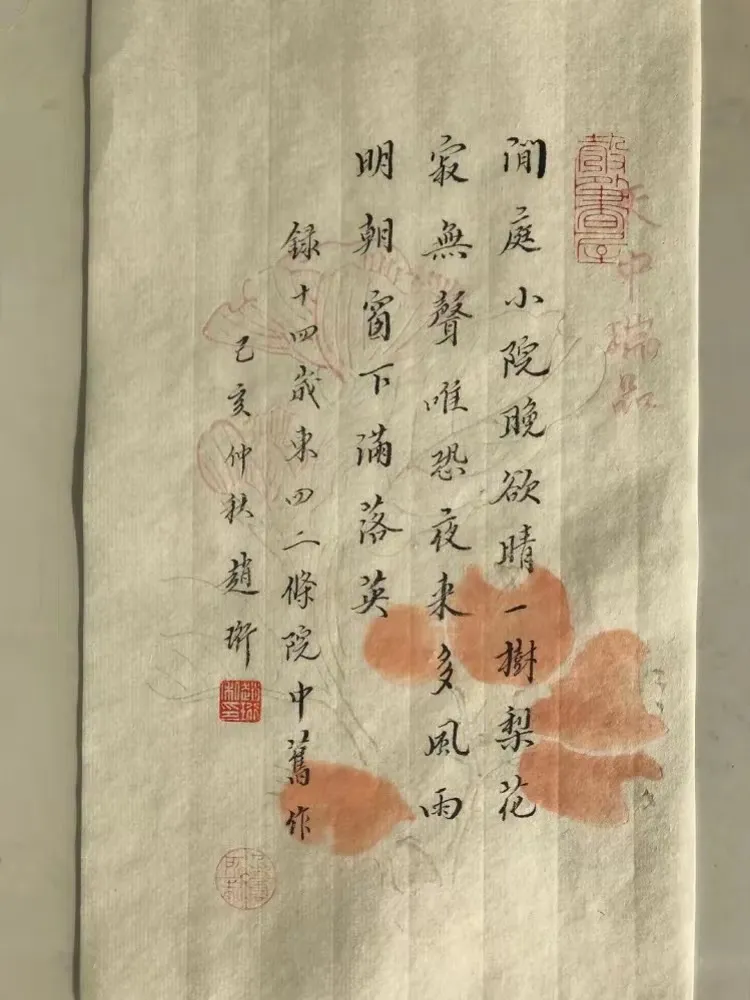 彀外書屋
天中瑞品
閒庭小院晚欲晴一樹梨花
寂無聲唯恐夜來多風雨
明朝窗下滿落英
録十四歲東四二條院中舊作
己亥仲秋趙珩